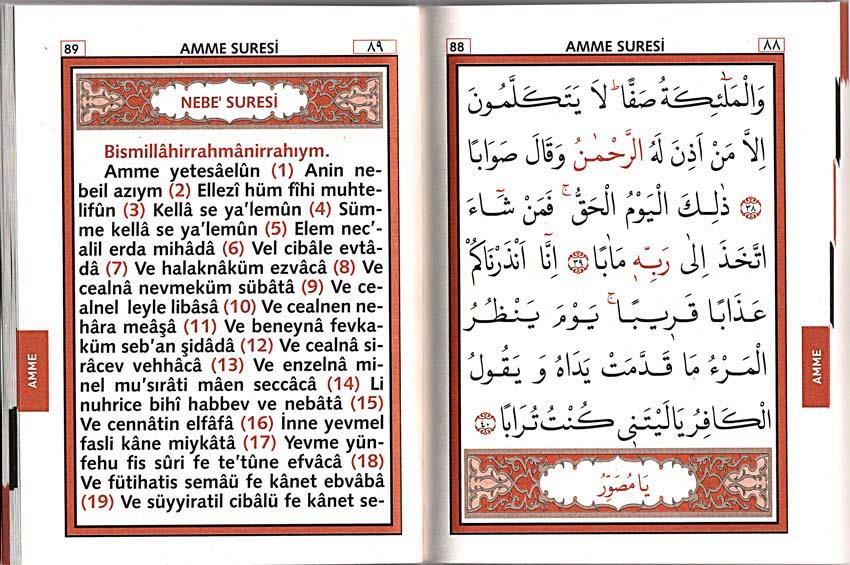 88 AMME SURESİ ٨٨
وَالْمَلٰٓئِكَةُ صَفًّاۜ لَا يَتَكَلَّمُونَ
اِلَّا مَنْ اَذِنَ لَهُ الرَّحْمٰنُ وَقَالَ صَوَابًا
﴿٣٨﴾ ذٰلِكَ الْيَوْمُ الْحَقُّۚ فَمَنْ شَٓاءَ
اتَّخَذَ اِلٰى رَبِّه۪ مَاٰبًا ﴿٣٩﴾ اِنَّٓا اَنْذَرْنَاكُمْ
عَذَابًا قَر۪يبًاۚ يَوْمَ يَنْظُرُ
الْمَرْءُ مَا قَدَّمَتْ يَدَاهُ وَ يَقُولُ
الْكَافِرُ يَالَيْتَن۪ي كُنْتُ تُرَابًا ﴿٤٠﴾
يَا مُصَوِّرُ
AMME
89 AMME SURESİ ٨٩
NEBE' SURESİ
Bismillâhirrahmânirrahıym.
Amme yetesâelûn (1) Anin ne-
beil azıym (2) Ellezî hüm fîhi muhte-
lifûn (3) Kellâ se ya'lemûn (4) Süm-
me kellâ se ya'lemûn (5) Elem nec'-
alil erda mihâdâ (6) Vel cibâle evtâ-
dâ (7) Ve halaknâküm ezvâcâ (8) Ve
cealnâ nevmeküm sübâtâ (9) Ve ce-
alnel leyle libâsâ (10) Ve cealnen ne-
hâra meâşâ (11) Ve beneynâ fevka-
küm seb'an şidâdâ (12) Ve cealnâ si-
râcev vehhâcâ (13) Ve enzelnâ mi-
nel mu'sırâti mâen seccâcâ (14) Li
nuhrice bihî habbev ve nebâtâ (15)
Ve cennâtin elfâfâ (16) İnne yevmel
fasli kâne miykâtâ (17) Yevme yün-
fehu fis sûri fe te'tûne efvâcâ (18)
Ve fütihatis semâü fe kânet ebvâbâ
(19) Ve süyyiratil cibâlü fe kânet se-
AMME